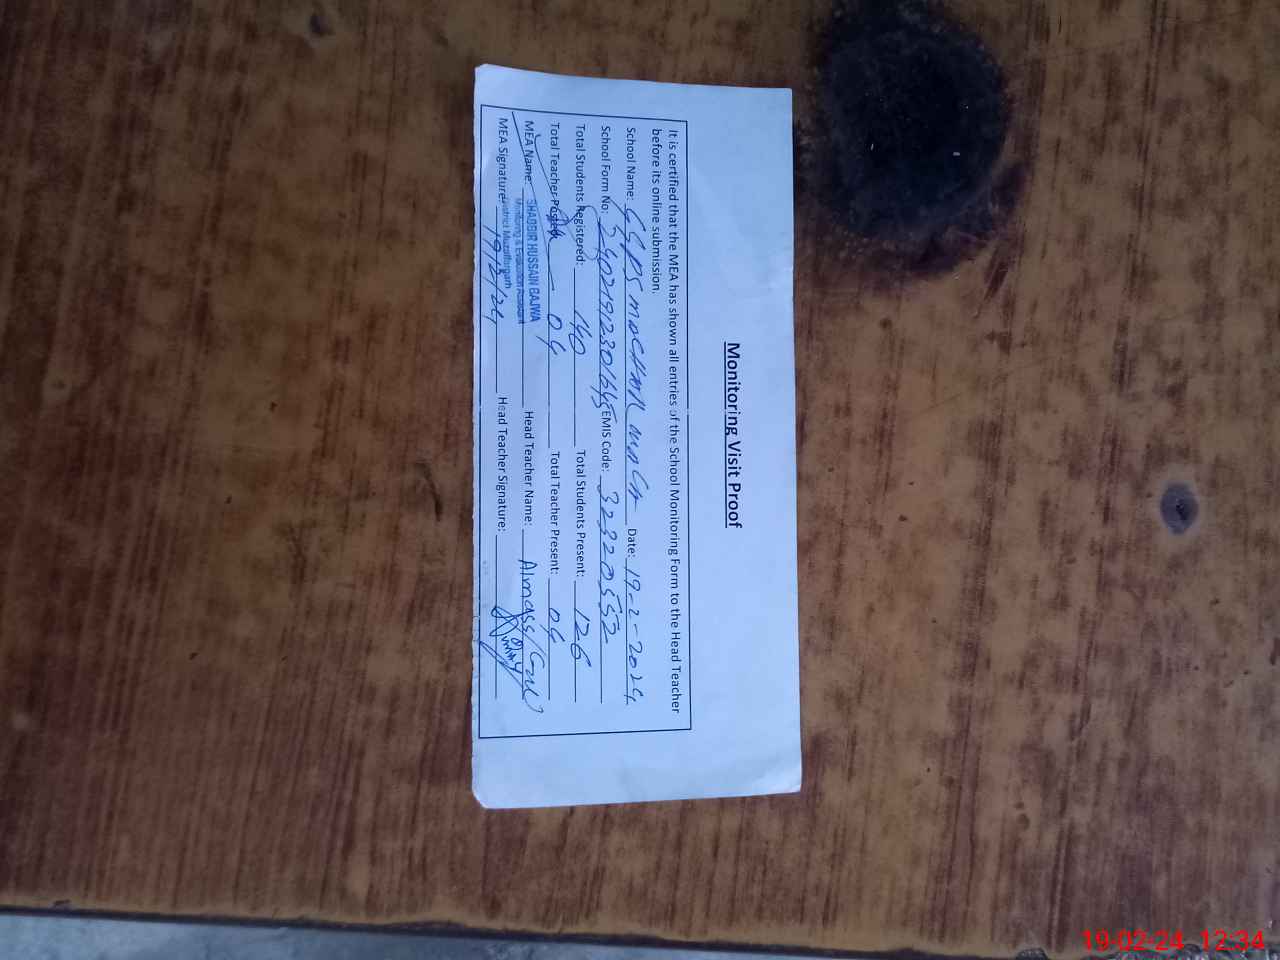 Monitoring Visit Proof
It is certified that the MEA has shown all entries of the School Monitoring Form to the Head Teacher
before its online submission.
School Name: GGPS Date: 19-2-2024
School Form No: EMIS Code: 32320552
Total Students Registered: 140 Total Students Present: 126
Total Teacher Posted: 04 Total Teacher Present: 04
MEA Name: SHABBIR HUSSAIN BAJWA Head Teacher Name: Almass
Monitoring & Evaluation Assistant
District Muzaffargarh
MEA Signature: 19/2/24 Head Teacher Signature:
19-02-24 12:34